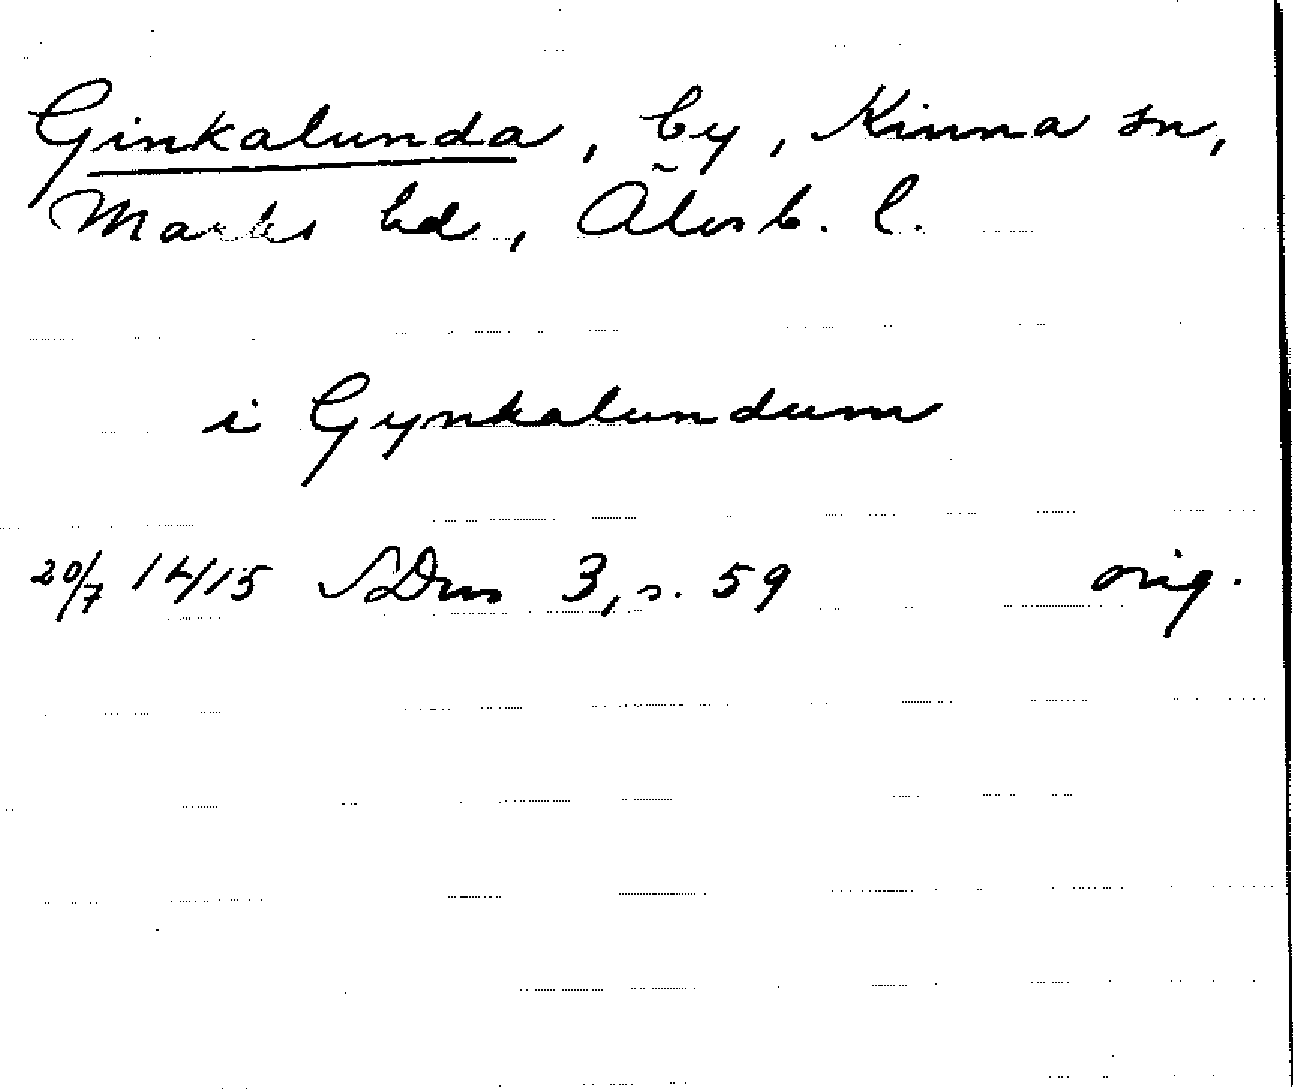 Ginkalunda, by, Kinna sn,
Marks hd, Älvsb. l.
i Gynkalundum
20/7 1415 SDns 3, s. 59 orig.